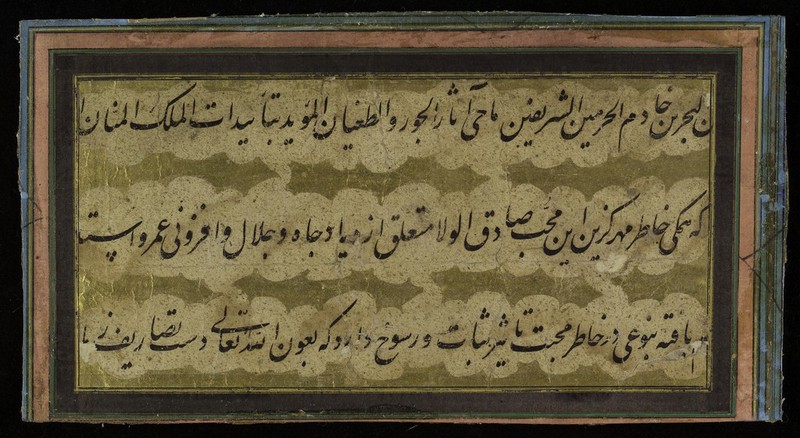 البحرین خادم الحرمین الشریفین ماحی آثار الجور والطغیان المؤید بتأییدات الملک المنان
که همکی خاطر مهر کزین این محب صادق الولا متعلق ازدیاد جاه و جلال و افزونی عمر و
یافته بنوعی در خاطر محبت تاثیر ثبات و رسوخ دارد که بعون الله تعالی دست تصاریف